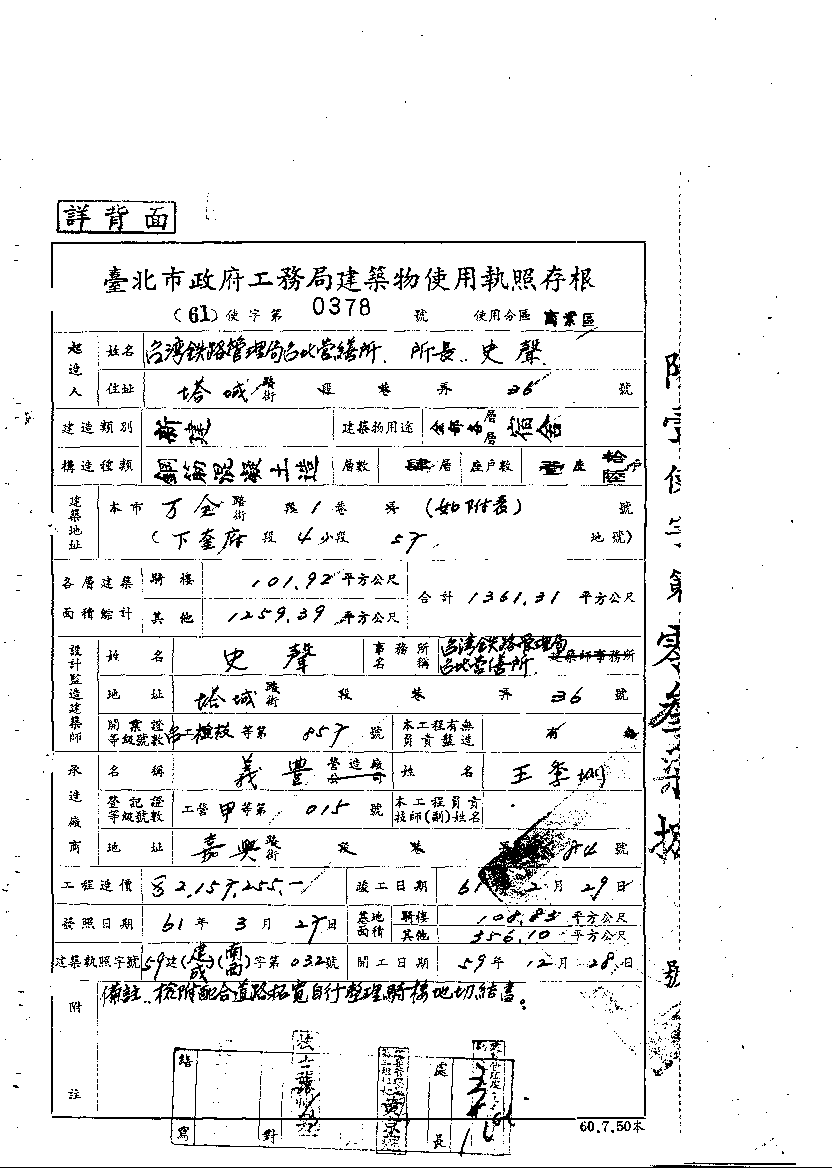 詳背面
臺北市政府工務局建築物使用執照存根
(61)使字第 0378 號 使用分區 商業區
起造人 姓名 台湾鉄路管理局台北营繕所. 所長. 史聲
住址 塔城 路街 段 巷 弄 36 號
建造類別 新建 建築物用途 全部各層層宿舍
構造種類 鋼筋混凝土造 層數 肆層 座戶數 座 戶
建築地址 本市 万全 路街 段 1 巷 弄 (如附表) 號
(下奎府 段 4 小段 57 地號)
各層建築面積總計 騎樓 101.92 平方公尺 合計 1361.31 平方公尺
其他 1259.39 平方公尺
設計監造建築師 姓名 史聲 事務所名稱 台湾鉄路管理局台北营繕所 建築師事務所
地址 塔城 路街 段 巷 弄 36 號
開業證等級號數 等第 857 號 本工程有無負責監造 有
承造廠商 名稱 義豐 營造廠公司 姓名 王季
登記證等級號數 工營 甲 等第 015 號 本工程負責技師(副)姓名
地址 嘉興 路街 段 巷 84 號
工程造價 2,157,255.- 竣工日期 61 年 2 月 29 日
發照日期 61 年 3 月 27 日 基地面積 騎樓 108.83 平方公尺
其他 356.10 平方公尺
建築執照字號 59 建(建成)(南西)字第 032 號 開工日期 59 年 12 月 28 日
附註 備註.檢附配合道路拓寬自行整理騎樓地切結書。
繕寫 對 處長
60.7.50本
使字第零叁柒捌號